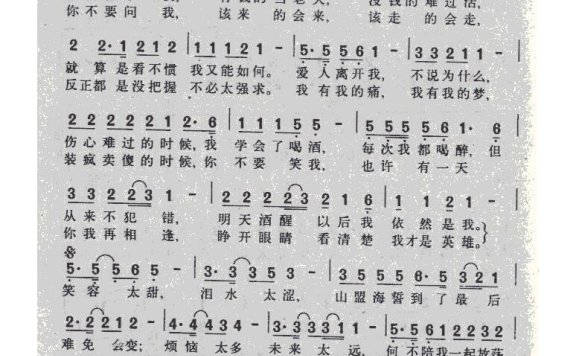 你不要问我， 该来 的会来， 该走 的会走，
2 2·1 2 1 2 | 1 1 1 2 1 - | 5·5 5 6 1 - | 3 3 2 1 1 - |
就算是看不惯 我又能如何。 爱人离开我， 不说为什么，
反正都是没把握 不必太强求。 我有我的痛， 我有我的梦，
2 2 2 2 2 1 2·6 | 1 1 1 5 5 - | 5 5 5 5 6 1· 6 |
伤心难过的时候，我 学会了喝酒， 每次我都喝醉，但
装疯卖傻的时候，你 不要笑我， 也许有一天
3 3 2 2 3 1 - | 2 2 2 2 3 2 1 6 | 1 1 2 1 - |
从来不犯错， 明天酒醒以后我 依然是我。
你我再相逢， 睁开眼睛看清楚 我才是英雄。
5·5 5 6 5 - | 3·3 3 5 3 - | 5 5 5 5 6·5 3 2 1 |
笑容太甜， 泪水太涩， 山盟海誓到了最后
2·2 2 1 2 - | 4·4 4 3 4 - | 3·3 3 1 1 - |
难免会变； 烦恼太多 未来太远， 何不陪我一起放荡